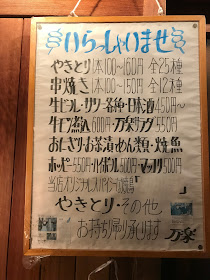 いらっしゃいませ
やきとり 1本100〜150円 全25種
串焼き 1本100〜150円 全12種
生ビール・サワー・各種・日本酒450円〜
牛モツ煮込 600円・万楽サラダ 550円
おにぎり・お茶漬・めん類・焼魚
ホッピー550円・ハイボール500円・マッコリ500円
当店オリジナルスパイシー
やきとり・その他
お持ち帰り承ります 万楽